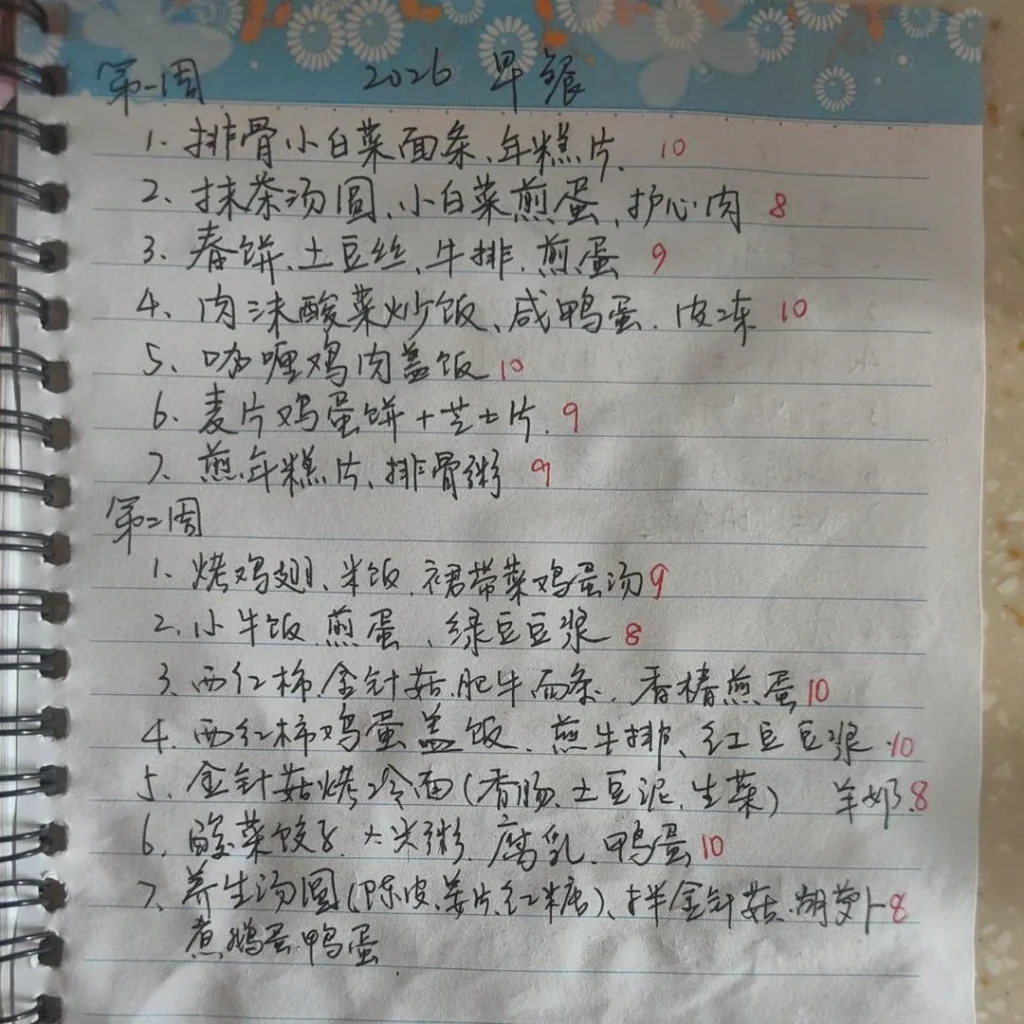 第一周 2026 早餐
1. 排骨小白菜面条、年糕片. 10
2. 抹茶汤圆、小白菜煎蛋、护心肉 8
3. 春饼、土豆丝、牛排、煎蛋 9
4. 肉沫酸菜炒饭、咸鸭蛋. 皮冻 10
5. 咖喱鸡肉盖饭 10
6. 麦片鸡蛋饼+芝士片. 9
7. 煎年糕片、排骨粥 9
第二周
1. 烤鸡翅、米饭、裙带菜鸡蛋汤 9
2. 小牛饭 煎蛋、绿豆豆浆 8
3. 西红柿、金针菇、肥牛面条、香椿煎蛋 10
4. 西红柿鸡蛋盖饭、煎牛排、红豆豆浆 10
5. 金针菇烤冷面(香肠、土豆泥、生菜) 羊奶 8
6. 酸菜饺子. 大米粥. 腐乳. 鸭蛋 10
7. 养生汤圆(陈皮、姜片、红糖)、拌金针菇、胡萝卜 8
煮鹅蛋、鸭蛋